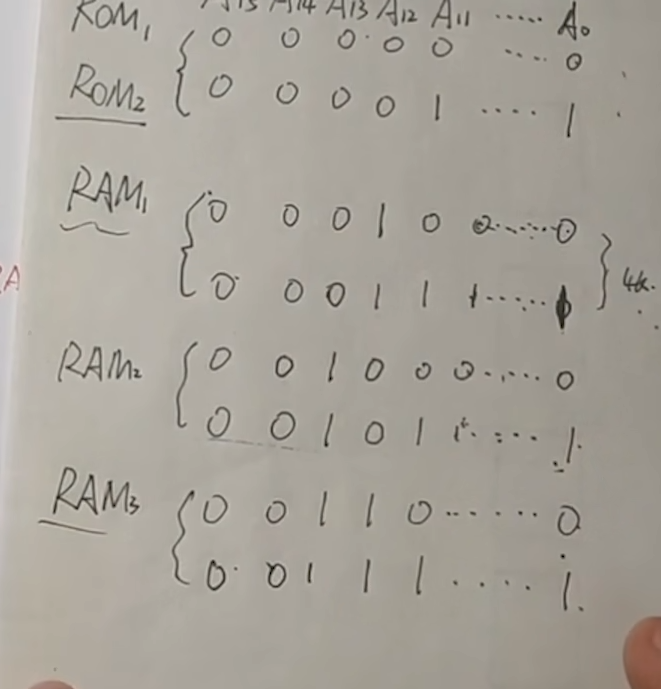 A15 A14 A13 A12 A11 ..... A0
ROM1 0 0 0 0 0 .... 0
ROM2 0 0 0 0 1 .... 1
RAM1 0 0 0 1 0 0 ...... 0
0 0 0 1 1 1 ...... 4k.
RAM2 0 0 1 0 0 0 ...... 0
0 0 1 0 1 1 .... 1
RAM3 0 0 1 1 0 ...... 0
0 0 1 1 1 .... 1.